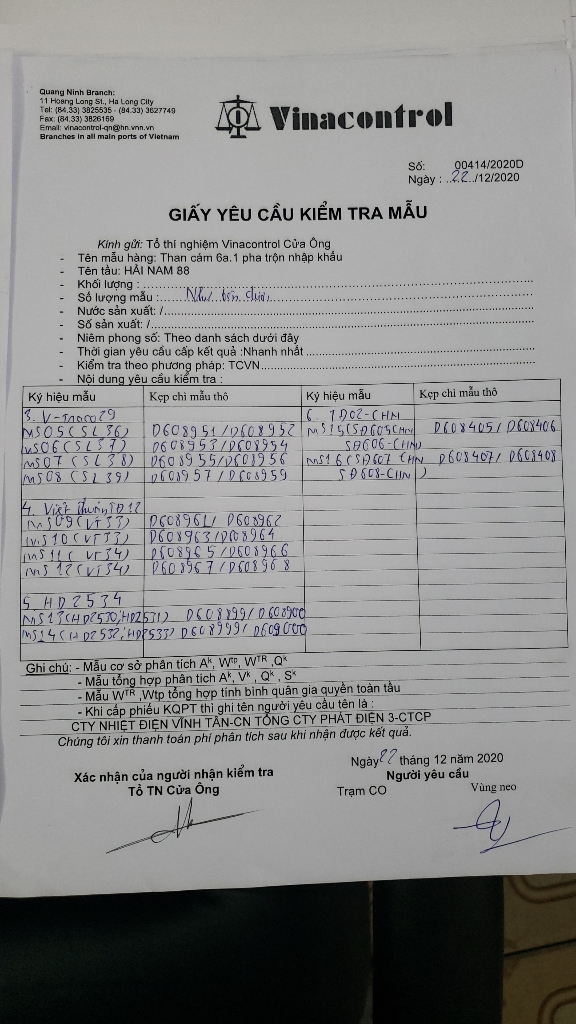 Quang Ninh Branch:
11 Hoang Long St., Ha Long City
Tel: (84.33) 3825535 - (84.33) 3627749
Fax: (84.33) 3826169
Email: vinacontrol-qn@hn.vnn.vn
Branches in all main ports of Vietnam
Vinacontrol
Số: 00414/2020D
Ngày : ..22../12/2020
GIẤY YÊU CẦU KIỂM TRA MẪU
Kính gửi: Tổ thí nghiệm Vinacontrol Cửa Ông
- Tên mẫu hàng: Than cám 6a.1 pha trộn nhập khẩu
- Tên tàu: HẢI NAM 88
- Khối lượng :
- Số lượng mẫu : Như bên dưới
- Nước sản xuất: /
- Số sản xuất: /
- Niêm phong số: Theo danh sách dưới đây
- Thời gian yêu cầu cấp kết quả :Nhanh nhất
- Kiểm tra theo phương pháp: TCVN
- Nội dung yêu cầu kiểm tra :
Ký hiệu mẫu Kẹp chì mẫu thô Ký hiệu mẫu Kẹp chì mẫu thô
3. V-Traco 29 6. TD02-CHN
MS05(SL36) D608951/D608952 MS15(SĐ605CHN D608405/D608406
MS06(SL37) D608953/D608954 SĐ606-CHN)
MS07(SL38) D608955/D608956 MS16(SĐ607 CHN D608407/D608408
MS08(SL39) D608957/D608959 SĐ608-CHN)
4. Việt Thuận TĐ12
MS09(VT33) D608961/D608962
MS10(VT33) D608963/D608964
MS11(VT34) D608965/D608966
MS12(VT34) D608967/D608968
5. HD2534
MS13(HD2530,HD2531) D608899/D608900
MS14(HD2532,HD2533) D608999/D609000
Ghi chú: - Mẫu cơ sở phân tích Aᵏ, Wᵗᵖ, Wᵀᴿ ,Qᵏ
- Mẫu tổng hợp phân tích Aᵏ, Vᵏ , Qᵏ , Sᵏ
- Mẫu Wᵀᴿ ,Wtp tổng hợp tính bình quân gia quyền toàn tầu
- Khi cấp phiếu KQPT thì ghi tên người yêu cầu tên là :
CTY NHIỆT ĐIỆN VĨNH TÂN-CN TỔNG CTY PHÁT ĐIỆN 3-CTCP
Chúng tôi xin thanh toán phí phân tích sau khi nhận được kết quả.
Ngày 22 tháng 12 năm 2020
Xác nhận của người nhận kiểm tra Người yêu cầu
Tổ TN Cửa Ông Trạm CO Vùng neo